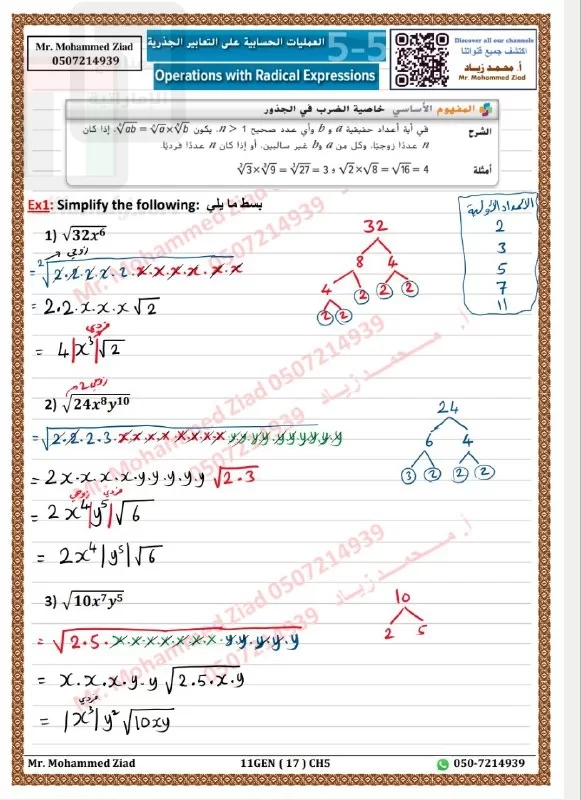 Mr. Mohammed Ziad
0507214939
العمليات الحسابية على التعابير الجذرية
5-5
Operations with Radical Expressions
Discover all our channels
اكتشف جميع قنواتنا
أ. محمد زياد
Mr. Mohammed Ziad
المفهوم الأساسي خاصية الضرب في الجذور
الشرح
في أية أعداد حقيقية a و b وأي عدد صحيح n > 1، يكون ⁿ√ab = ⁿ√a × ⁿ√b، إذا كان
n عددًا زوجيًا، وكل من a و b غير سالبين، أو إذا كان n عددًا فرديًا.
أمثلة
√2 × √8 = √16 = 4 و ³√3 × ³√9 = ³√27 = 3
Ex1: Simplify the following: بسط ما يلي
الاعداد الأولية
2
3
5
7
11
1) √32x⁶
زوجي
= ²√2.2.2.2.2.x.x.x.x.x.x
= 2.2.x.x.x √2
فردي
= 4|x³|√2
32
8 4
4 2 2 2
2 2
2) √24x⁸y¹⁰
2 زوجي
= √2.2.2.3.x.x.x.x.x.x.x.x.y.y.y.y.y.y.y.y.y.y
= 2x.x.x.x.y.y.y.y.y √2.3
زوجي فردي
= 2x⁴|y⁵|√6
= 2x⁴|y⁵|√6
24
6 4
3 2 2 2
3) √10x⁷y⁵
= √2.5.x.x.x.x.x.x.x.y.y.y.y.y
= x.x.x.y.y √2.5.x.y
فردي
= |x³|y²√10xy
10
2 5
Mr. Mohammed Ziad 0507214939
أ. محمد زياد 0507214939
Mr. Mohammed Ziad 0507214939
أ. محمد زياد 0507214939
Mr. Mohammed Ziad
11GEN ( 17 ) CH5
050-7214939